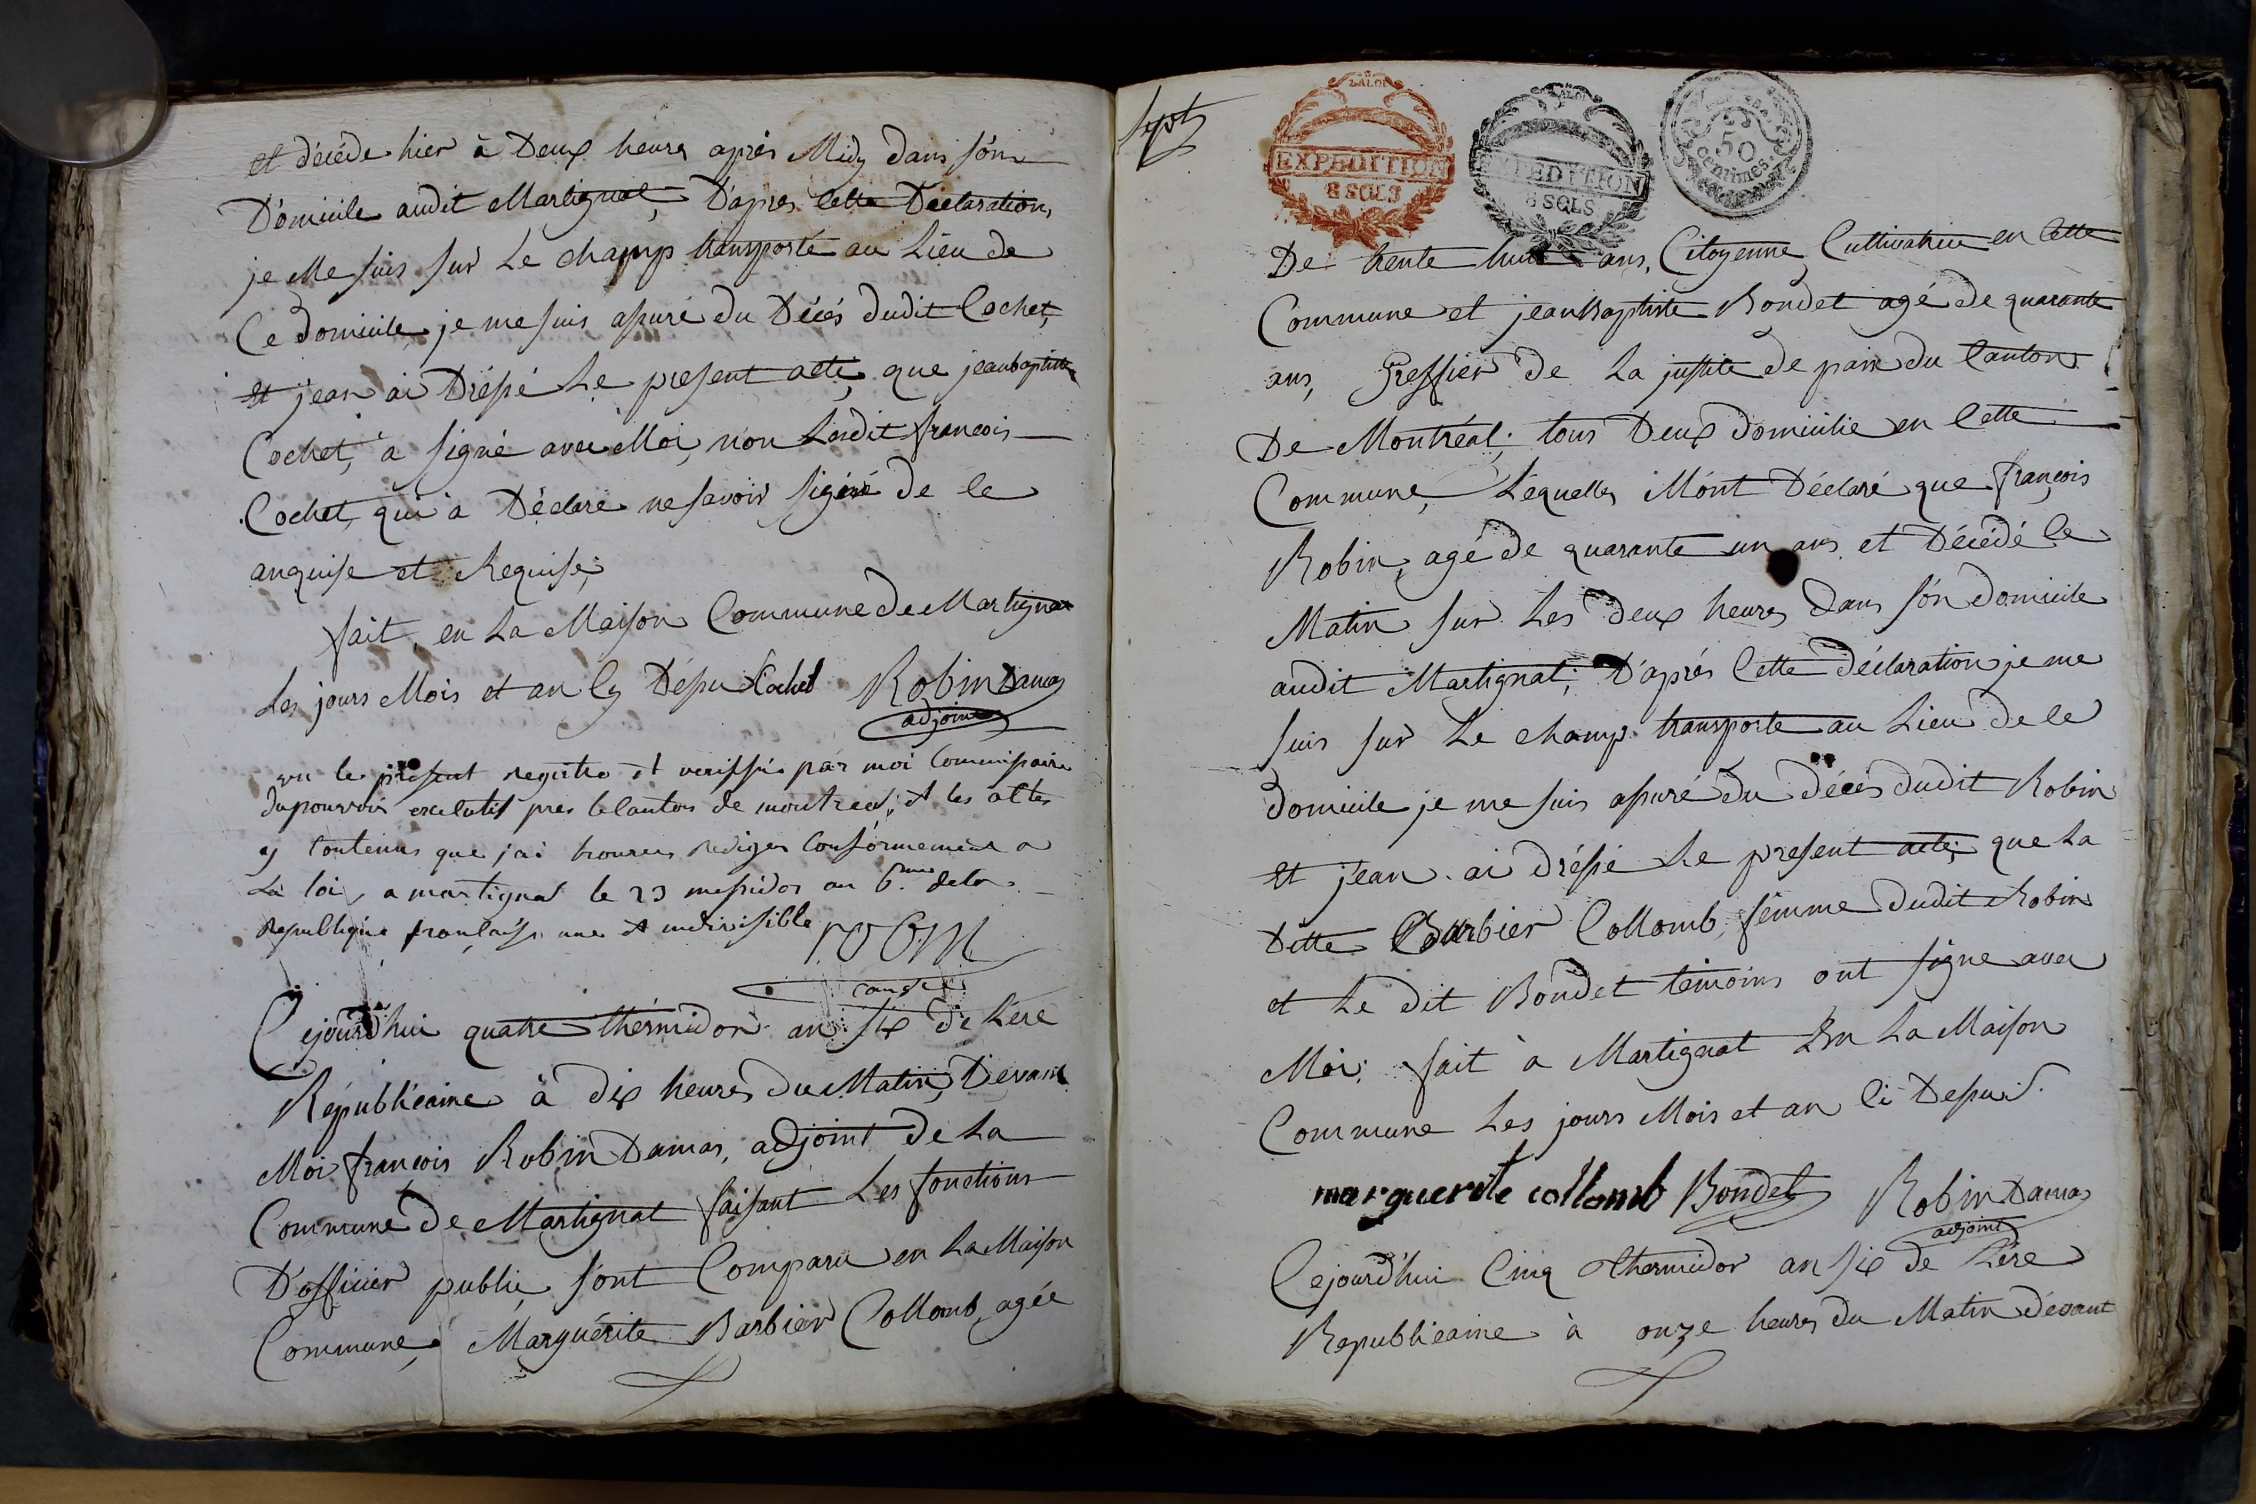 et décéde hier à Deux heures après Midy dans son
Domicile audit Martignat, D'après cette Declaration,
je Me suis sur Le champ transporté au Lieu de
Ce domicile, je me suis assuré du Décés dudit Cochet,
et jean ai Dréssé Le present acte, que jeanbaptiste
Cochet, à signé avec Moi, non Ledit francois
Cochet, qui à Déclaré ne savoir signé de ce
anquise et Requise;
fait, en La Maison Commune de Martignat
Les jours Mois et an Cy Dépu Cochet Robin Damas
adjoint
vu le présent registre et veriffié par moi Commissaire
du pouvoir executif pres le canton de montreal, et les actes
y Contenus que j'ai trouvés rediger Conformement a
La loi, a martignat le 23 messidor an 6.me de la
republique française une et indivisible robin
Cejourd'hui quatre thérmidor an six de Lère
Républicaine à dix heures du Matin, Devant
Moi françois Robin Damas, adjoint de La
Commune de Martignat faisant Les fonctions
D'officier public, sont Comparu en La Maison
Commune, Marguérite Barbier Collomb, agée
Sept
LA LOI
EXPEDITION
8 SOLS
LA LOI
EXPEDITION
8 SOLS
50
centimes.
De trente huit ans, Citoyenne Cultivatrice en Cette
Commune et jean Baptiste Bondet agé de quarante
ans, Greffier de La justice de paix du Canton
De Montréal; tous Deux domicilié en Cette
Commune, Lequelles M'ont Déclaré que françois
Robin, agé de quarante un ans et Décédé ce
Matin sur Les deux heures dans son domicile
audit Martignat; D'après Cette déclaration je me
suis sur Le champ transporte au Lieu de ce
domicile je me suis assuré du décés dudit Robin
et jean ai dréssé Le present acte; que La
Ditte Barbier Collomb, femme dudit Robin
et Le dit Bondet témoins ont signe avec
Moi; fait à Martignat En La Maison
Commune Les jours Mois et an Ci Depu.
marguerite collomb Bondet Robin Damas
adjoint
Cejourd'hui Cinq thermidor an six de L'ère
Republicaine à onze heures du Matin dévant